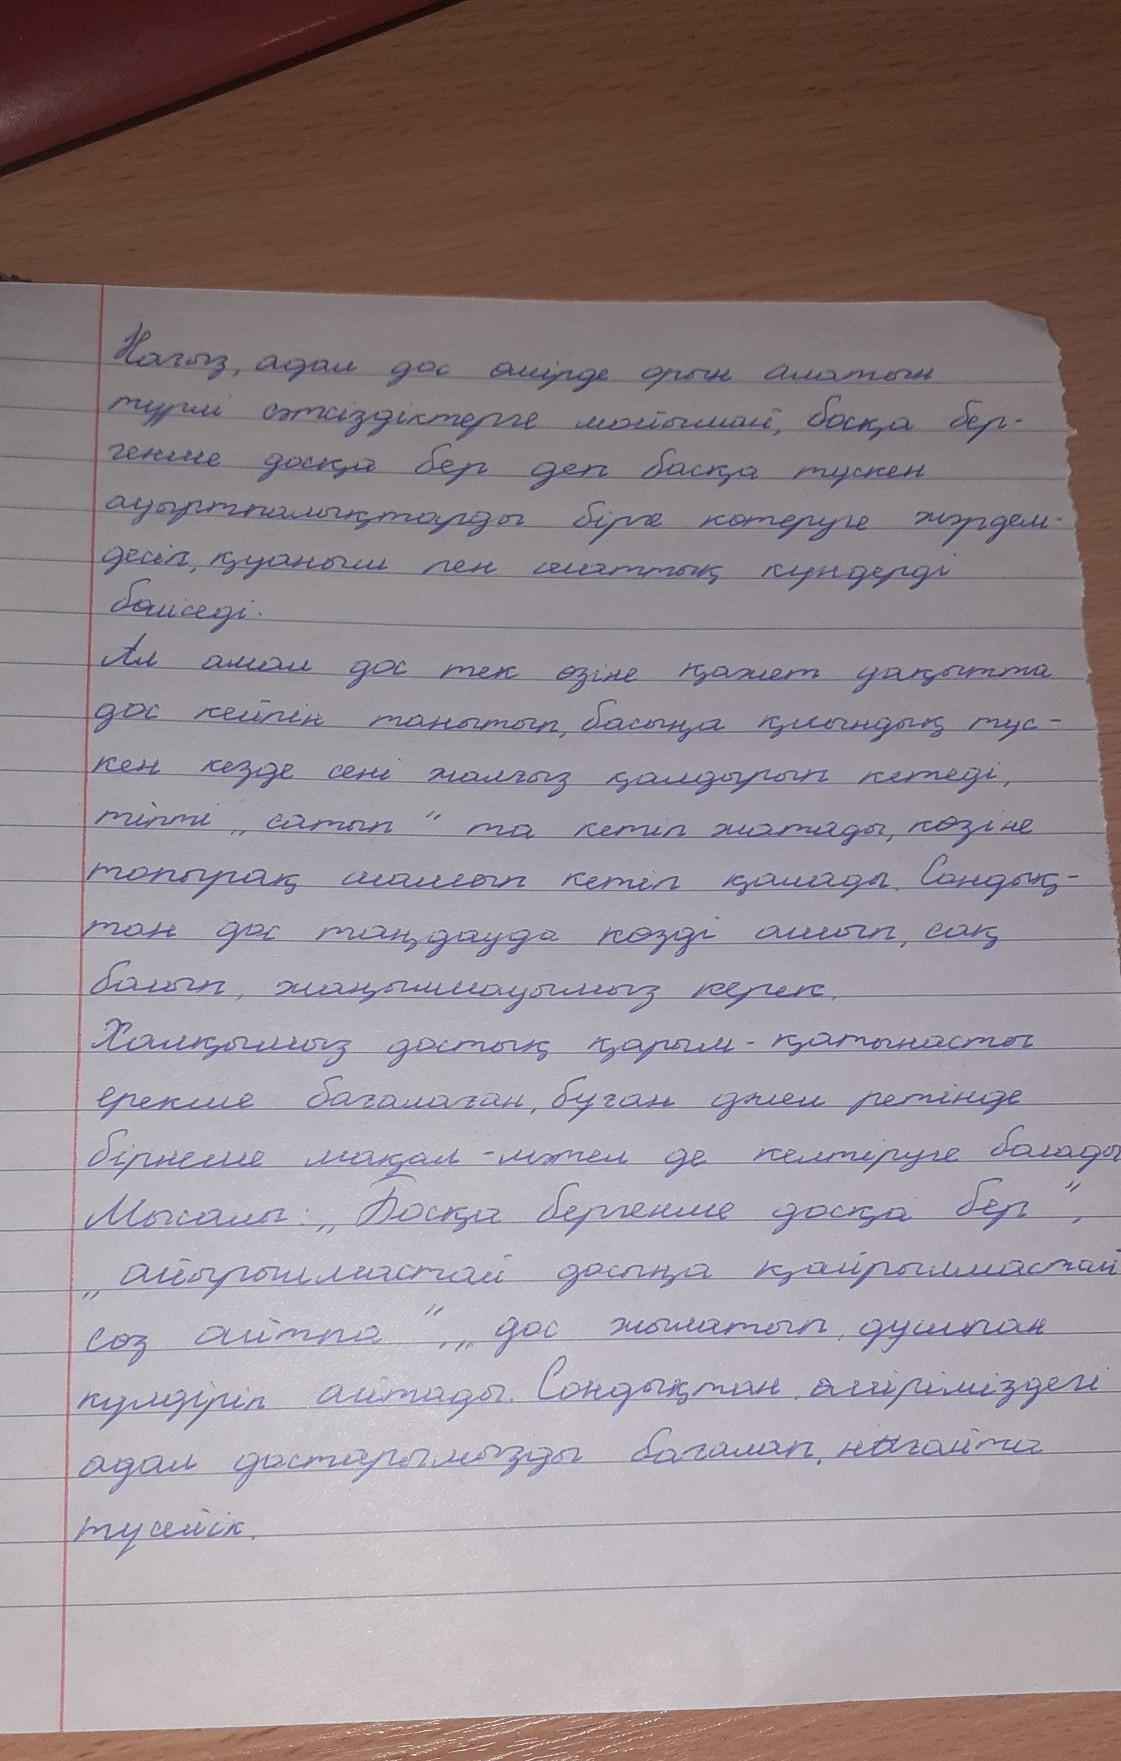 Нағыз, адал дос өмірде орын алатын
түрлі сәтсіздіктерге мойымай, басқа бер-
генше досқа бер деп басқа түскен
ауыртпалықтарды бірге көтеруге жәрдем-
десіп, қуаныш пен шаттық күндерді
бөліседі.
Ал амал дос тек өзіне қажет уақытта
дос кейпін танытып, басыңа қиындық түс-
кен кезде сені жалғыз қалдырып кетеді,
тіпті „сатып" та кетіп жатады, көзіне
топырақ шашып кетіп қалады. Сондық-
тан дос таңдауда көзді ашып, сақ
болып, жаңылмауымыз керек.
Халқымыз достық қарым-қатынасты
ерекше бағалаған, бұған дәлел ретінде
бірнеше мақал-мәтел де келтіруге болады
Мысалы: „Басқа бергенше досқа бер",
„айырылмастай досыңа қайрылмастай
сөз айтпа", „дос жылатып, душпан
күлдіріп айтады. Сондықтан өміріміздегі
адал достарымызды бағалап, нығайта
түсейік.